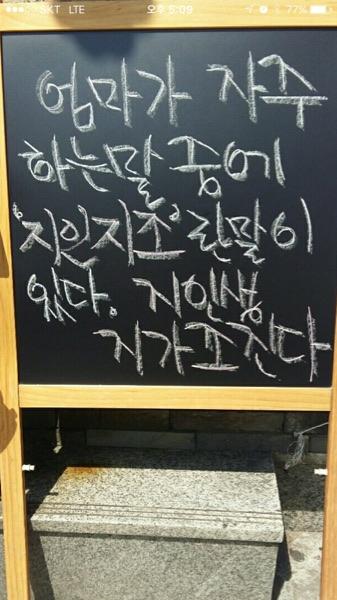 SKT LTE 오후 5:09 77%
엄마가 자주
하는말 중에
'지인지조'란말이
있다. 지인생
지가조진다